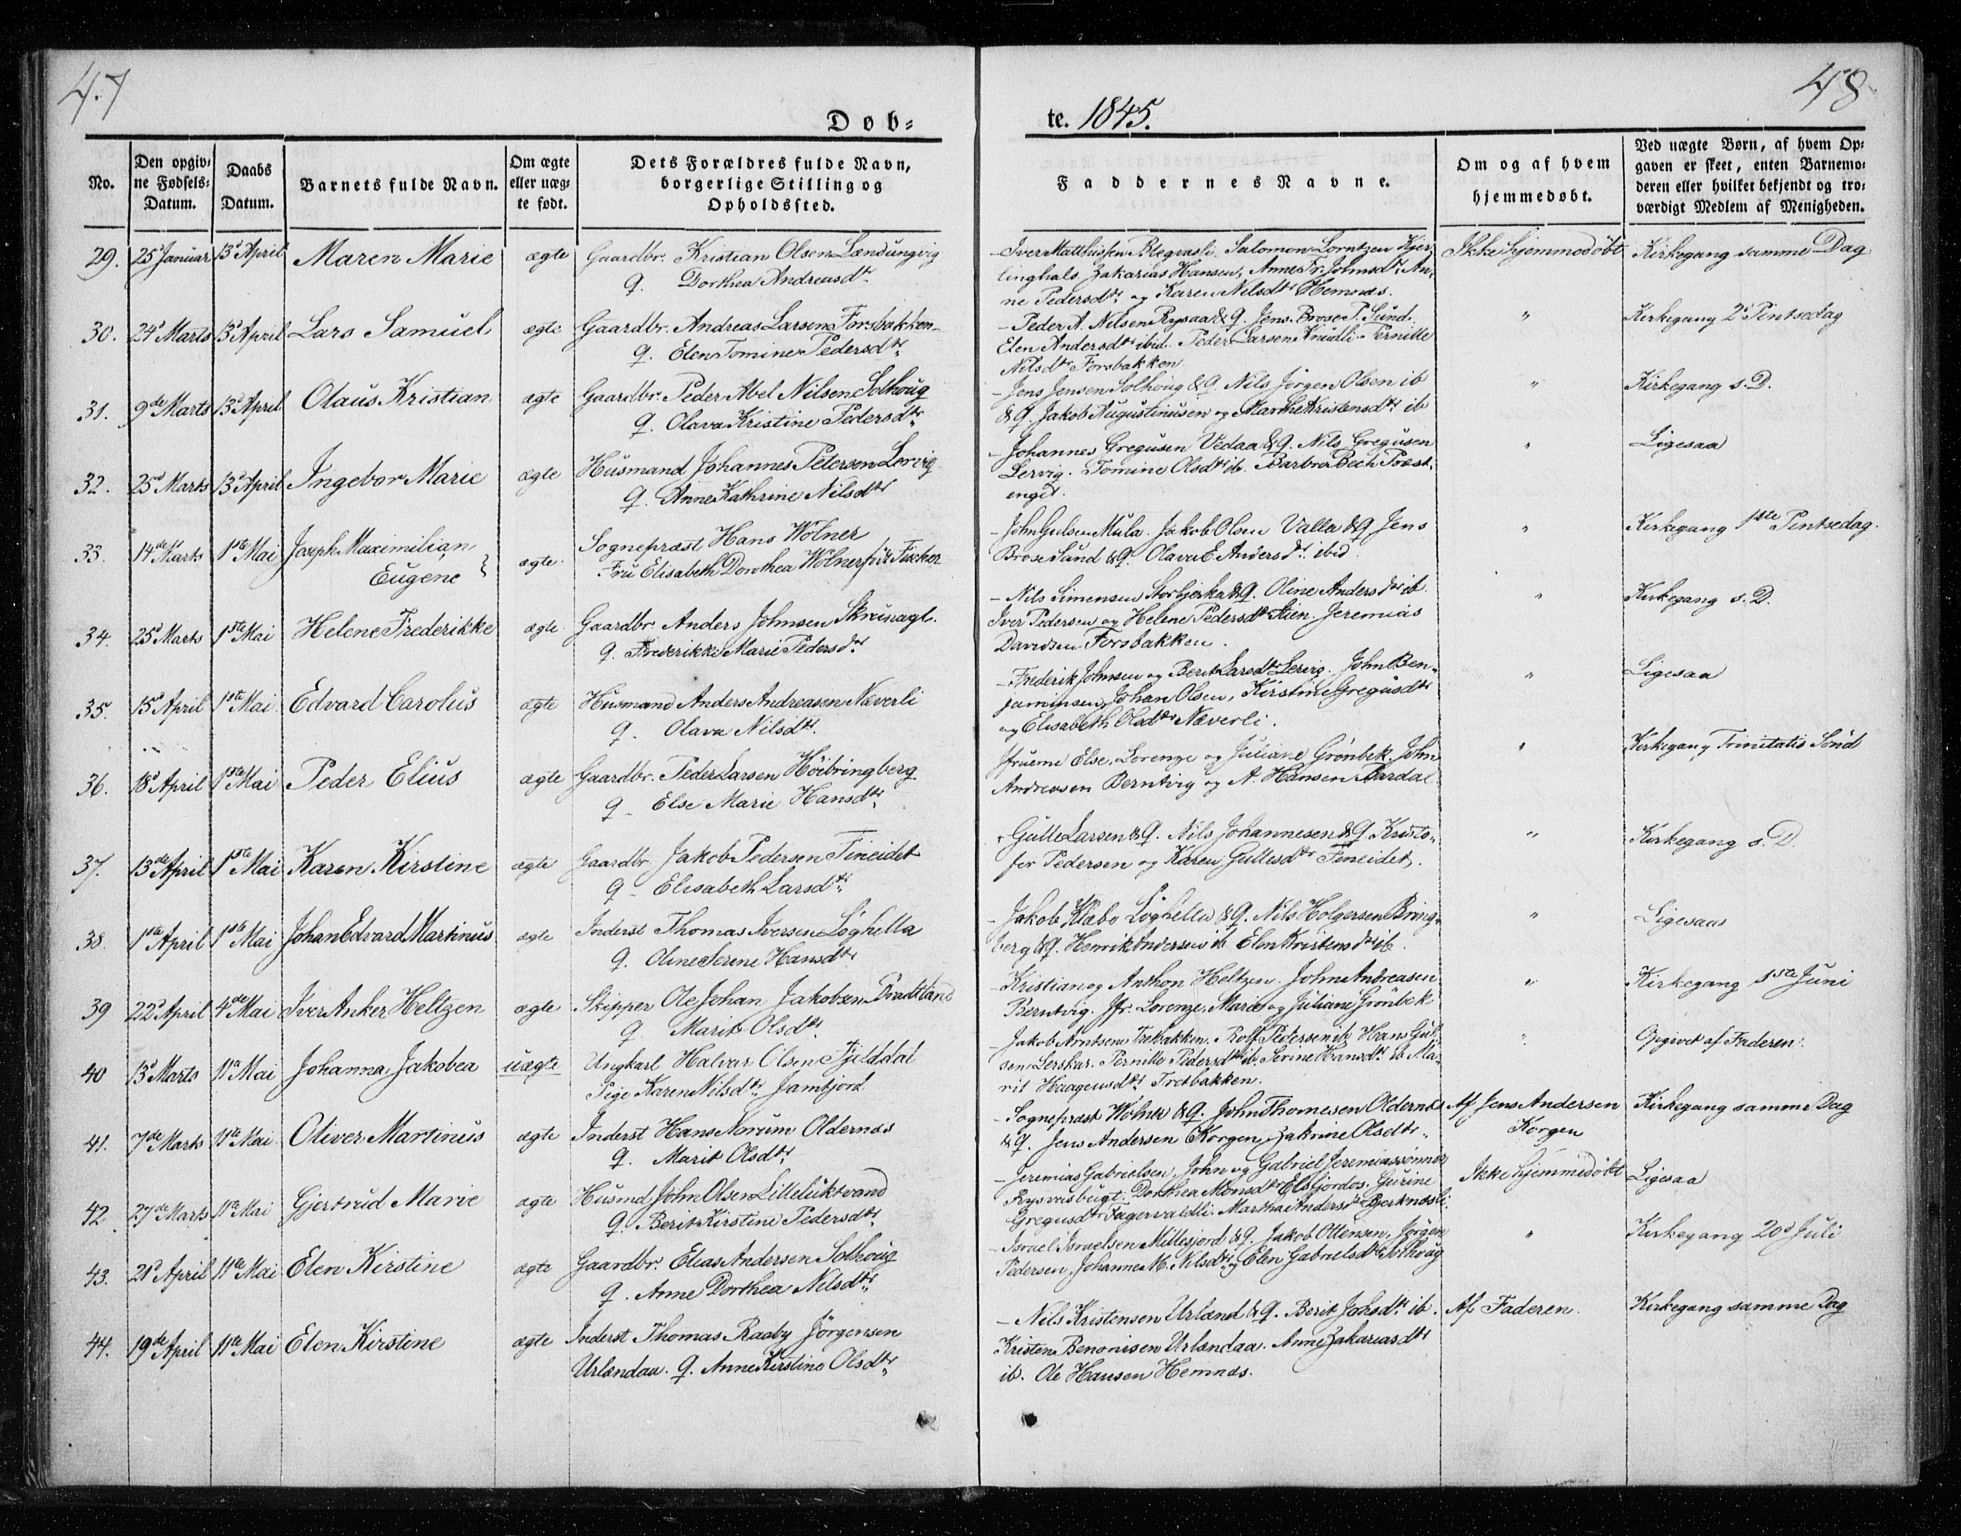 47
48
Døb-
te. 1845.
No.
Den opgiv-
ne Fødsels-
Datum.
Daabs
Datum.
Barnets fulde Navn.
Om ægte
eller uæg-
te født.
Dets Forældres fulde Navn,
borgerlige Stilling og
Opholdssted.
Faddernes Navne.
Om og af hvem
hjemmedøbt.
Ved uægte Børn, af hvem Op-
gaven er skeet, enten Barnemo-
deren eller hvilket bekjendt og tro-
værdigt Medlem af Menigheden.
29. 25d Januar 13d April Maren Marie ægte Gaardbr. Kristian Olsen
q. Dorthea Andreasdtr
Iver Salomon Lorntzen
Zakarias Hansen, Anne Fr. Johnsdtr An-
ne Pedersdtr og Karen Nilsdtr Hemnæs.
Ikke hjemmedøbt Kirkegang samme Dag
30. 24d Marts 13d April Lars Samuel ægte Gaardbr. Andreas Larsen Forsbakken
q. Elen Tomine Pedersdtr
- Peder A. Nilsen Rysaa & q. Jens Brose P. Sund.
Elen Andersdtr ibid. Peder Larsen Pernille
Nilsdtr Forsbakken
" Kirkegang 2d Pintsedag
31. 9de Marts 13d April Olaus Kristian ægte Gaardbr. Peder Abel Nilsen Solhoug
q. Olava Kristine Pedersdtr
- Jens Jensen Solhoug & q. Nils Jørgen Olsen ib
& q. Jakob Augustinusen og Marthe Kristensdtr ib
" Kirkegang s. D.
32. 25d Marts 13d April Ingebor Marie ægte Husmand Johannes Petersen Lervig
q. Anne Kathrine Nilsdtr
- Johannes Gregusen Vedaa & q. Nils Gregusen
Lervig. Tomine Olsdtr ib. Barbra Bech Præst-
enget.
" Ligesaa
33. 14de Marts 1ste Mai Joseph Maximilian
Eugene
ægte. Sognepræst Hans Wølner
Fru Elisabeth Dorothea Wølner født Fischer
- John Gulsen Mula. Jakob Olsen Valla & q Jens
Brose Sund & q. Olava E. Andersdtr ibid.
" Kirkegang 1ste Pintsedag.
34. 25d Marts 1ste Mai Helene Frederikke ægte. Gaardbr Anders Johnsen
q. Frederikke Marie Pedersdtr
- Nils Simensen Storbjerka & q. Oline Andersdtr ib
Iver Pedersen og Helene Pedersdtr Jeremias
Davidsen Forsbakken.
" Kirkegang s. D.
35. 15d April 1ste Mai Edvard Carolus ægte Husmand Anders Andreasen Næverli
q. Olava Nilsdtr.
- Frederik Johnsen og Berit Larsdtr Lervig. John Ben-
jaminsen, Johan Olsen, Kirstine Gregusdtr
og Elisabeth Olsdtr Næverli.
" Ligesaa
36. 18d April 1ste Mai Peder Elius ægte Gaardbr. Peder Larsen Høibringberg
q. Else Marie Hansdtr
Else, Lorenze og Juliane Grønbek. John
Andreasen Berntvig og A. Hansen Bardal
" Kirkegang Trinitatis Sønd
37. 13de April 1ste Mai Karen Kirstine ægte Gaardbr. Jakob Pedersen Fineidet
q. Elisabeth Larsdtr
- Gulle Larsen & q. Nils Johannesen & q Kristo-
fer Pedersen og Karen Gullesdtr Fineidet.
" Kirkegang s. D.
38. 1ste April 1ste Mai Johan Edvard Martinus ægte Inderst Thomas Iversen Løghella
q. Oline Serine Hansdtr
- Jakob Klæbo Løghella & q. Nils Holgersen Bring-
berg & q. Henrik Andersen ib Elen Kristensdtr ib.
" Ligesaa
39 22d April 4de Mai Iver Anker Heltzen ægte Skipper Ole Johan Jakobsen
q Marit Olsdtr
- Kristian og Anthon Heltzen, John Andreasen
Berntvig. Jfr. Lorenze, Marie og Juliane Grønbek
" Kirkegang 1ste Juni
40 13d Marts 11te Mai Johanna Jakobea uægte Ungkarl Halvar Olsen Fjelddal
Pige Karen Nilsdtr Jamtjord
- Jakob Arntsen Rolf Pedersen ib. Hans Gul-
sen Lerskar. Pernille Pedersdtr ib. Serine Hansdtr ib Ma-
rit Haagensdtr
" Opgivet af Faderen.
41. 7de Marts 11te Mai Oliver Martinus ægte Inderst Hans Norum Oldernæs
q. Marit Olsdtr
- Sognepræst Wølner & q. John Thomesen Oldernæs
& q. Jens Andersen Korgen, Zakrine Olsdtr
Af Jens Andersen
Korgen
Kirkegang samme Dag
42. 27de Marts 11te Mai Gjertrud Marie ægte Husmd. John Olsen
q. Berit Kirstine Pedersdtr
- Jeremias Gabrielsen, John og Gabriel Jeremiassønner
Dorthea Monsdtr Elsfjordos. Gurine
Gregusdtr Martha Andersdtr
Ikke hjemmedøbt Ligesaa
43. 21d April 11te Mai Elen Kirstine ægte Gaardbr. Elias Andersen Solhoug
q. Anne Dorthea Nilsdtr
- Israel Israelsen Millesjord & q. Jakob Ottensen, Jørgen
Pedersen, Johanne M. Nilsdtr og Elen Gabrielsdtr Solhoug
" Kirkegang 20d Juli
44. 19de April 11te Mai Elen Kirstine ægte Inderst Thomas Raaby Jørgensen
Urlandaa. q. Anne Kirstine Olsdtr
- Nils Kristensen Urland & q. Berit Johsdtr ib.
Kristen Benonisen Urlandaa. Anne Zakariasdtr
ib. Ole Hansen Hemnæs.
Af Faderen. Kirkegang samme Dag